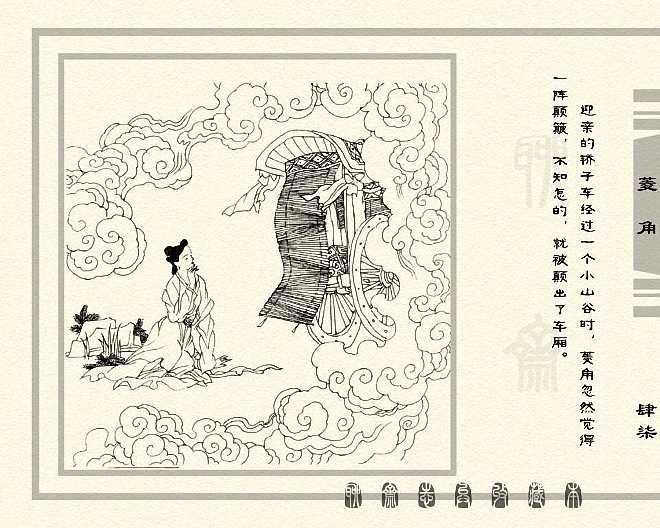 菱角
迎亲的轿子车经过一个小山谷时，菱角忽然觉得
一阵颠簸，不知怎的，就被颠出了车厢。
肆柒
聊斋志异收藏本
聊斋